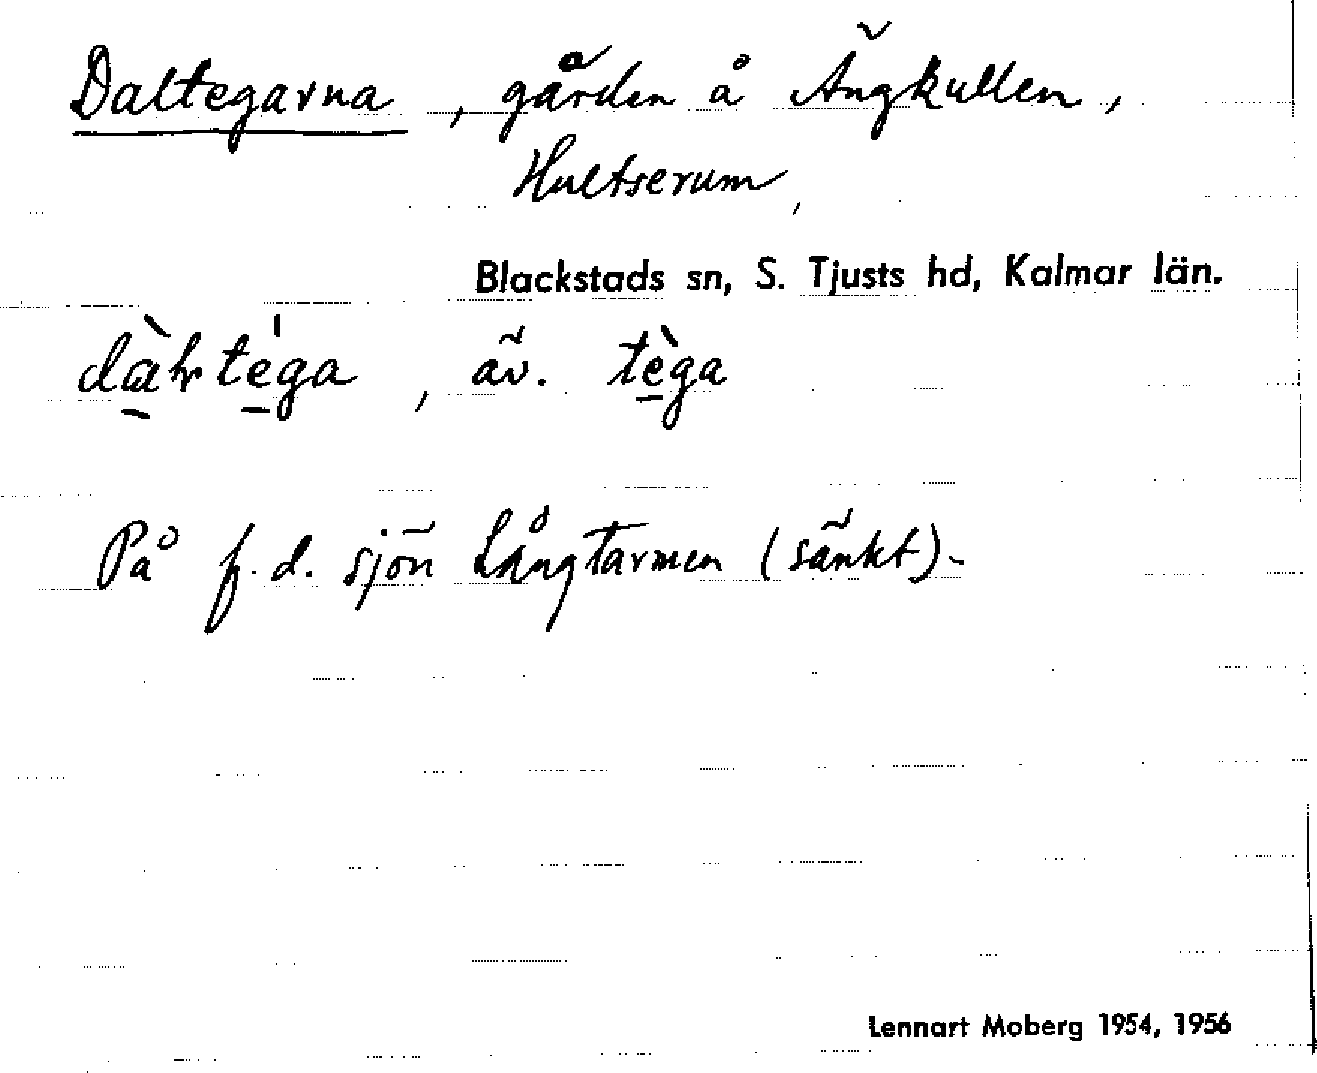 Daltegarna, gärden å Ängkullen,
Hultserum,
Blackstads sn, S. Tjusts hd, Kalmar län.
dàltéga, äv. tèga
På f. d. sjön Långtarmen (sänkt).
Lennart Moberg 1954, 1956